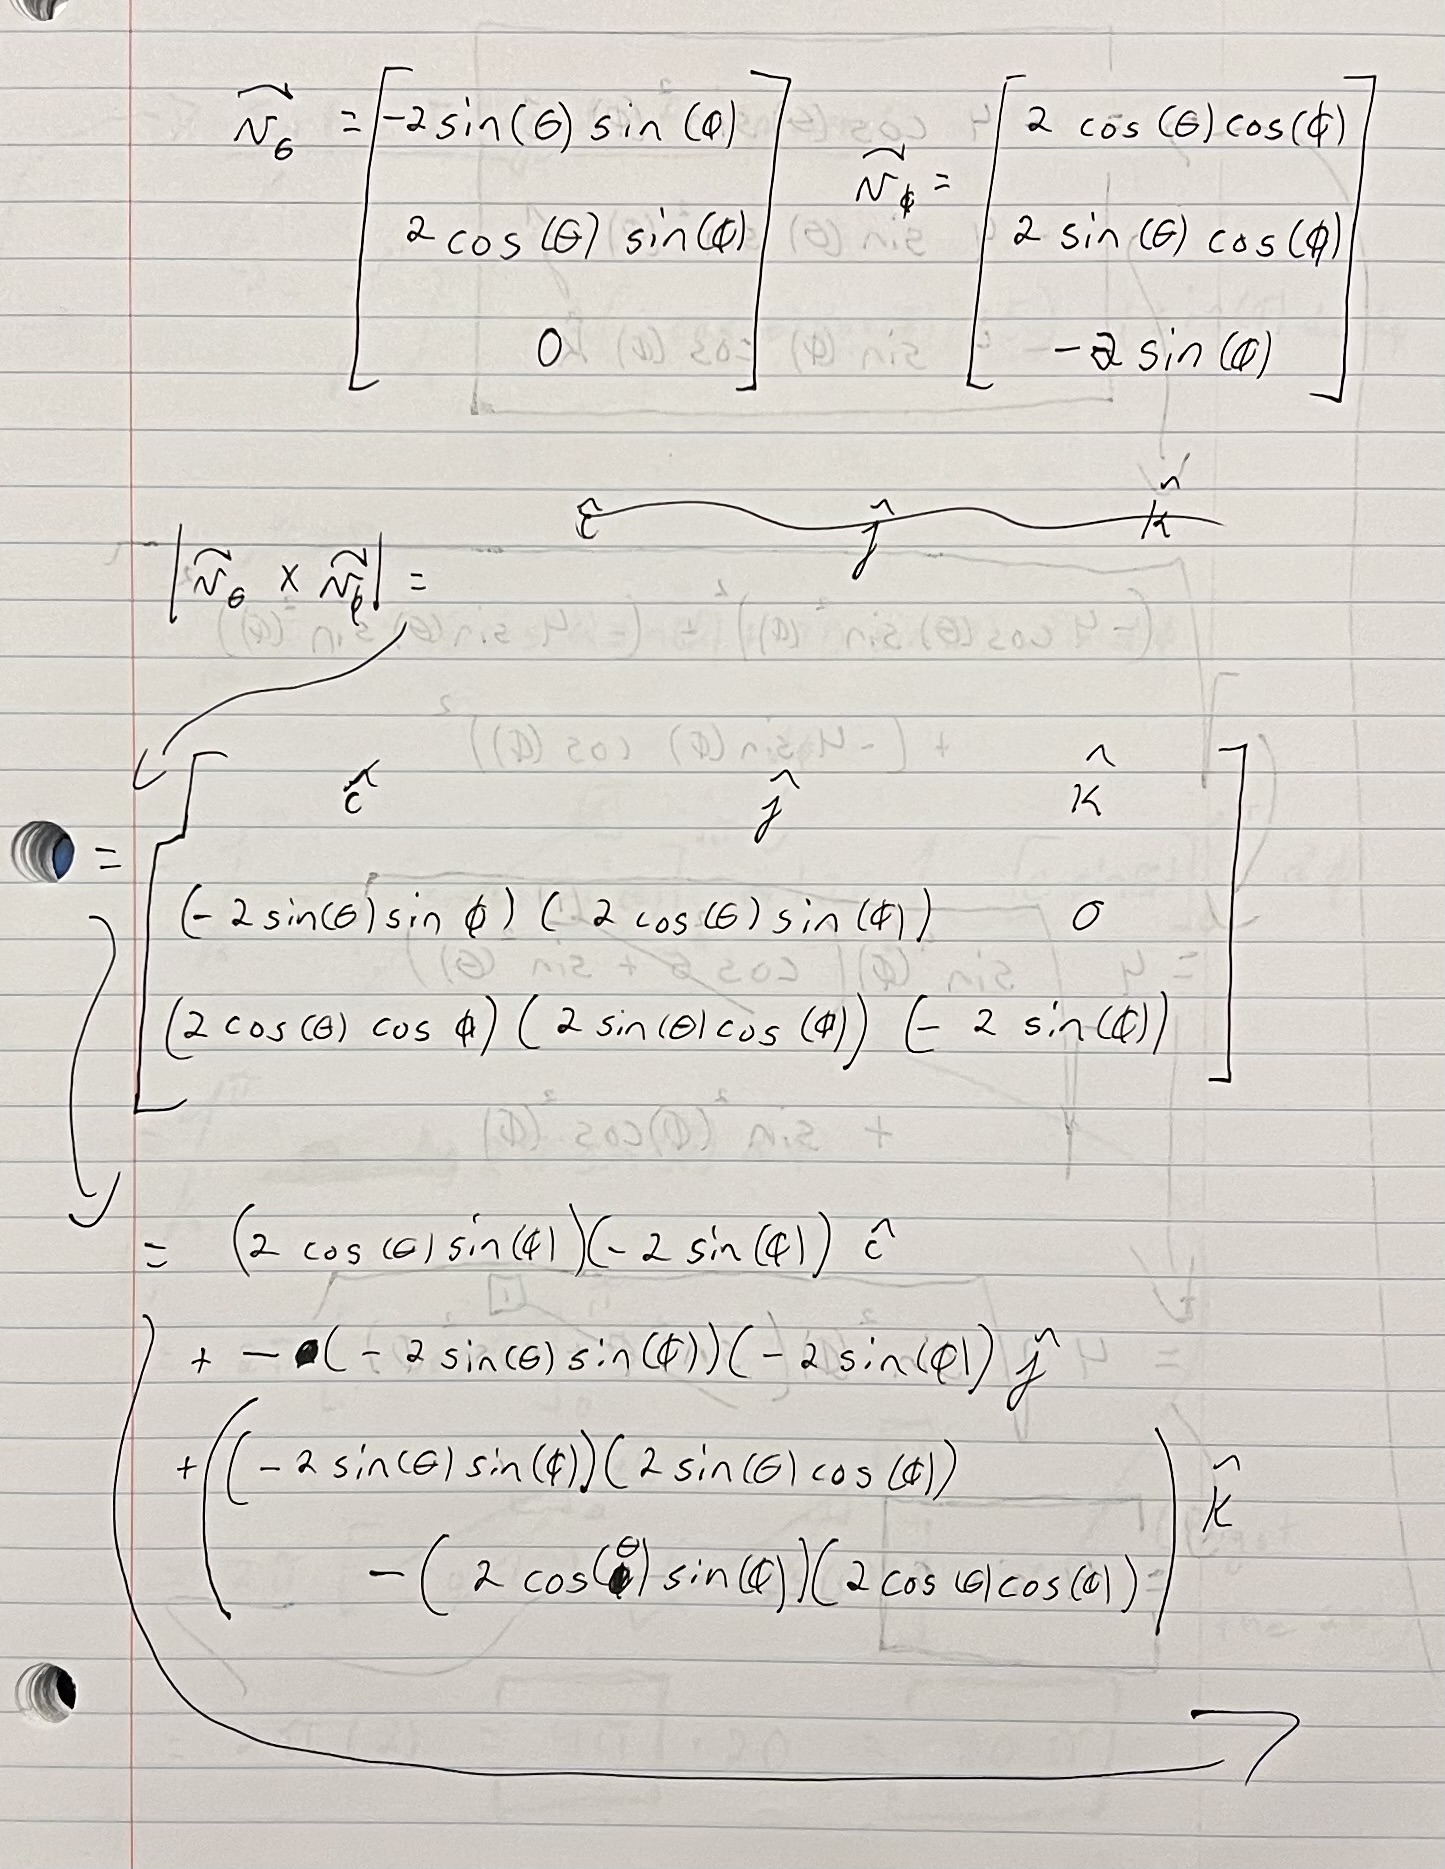 r⃗_θ = [-2 sin(θ) sin(ϕ)   r⃗_ϕ = [2 cos(θ) cos(ϕ)
2 cos(θ) sin(ϕ)   2 sin(θ) cos(ϕ)
0]   -2 sin(ϕ)]
î ĵ k̂
|r⃗_θ x r⃗_ϕ| =
= [î ĵ k̂
(-2 sin(θ) sin ϕ) (2 cos(θ) sin(ϕ)) 0
(2 cos(θ) cos ϕ) (2 sin(θ) cos(ϕ)) (-2 sin(ϕ))]
= (2 cos(θ) sin(ϕ))(-2 sin(ϕ)) î
+ -(-2 sin(θ) sin(ϕ))(-2 sin(ϕ)) ĵ
+ ((-2 sin(θ) sin(ϕ))(2 sin(θ) cos(ϕ))
-(2 cos(θ) sin(ϕ))(2 cos(θ) cos(ϕ))) k̂